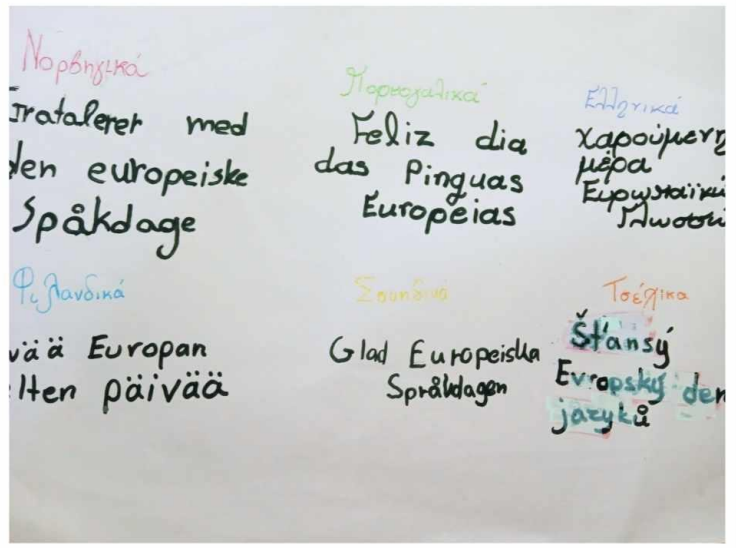 Νορβηγικά
Grataleret med
den europeiske
Spåkdage
Πορτογαλικά
Feliz dia
das Pinguas
Europeias
Ελληνικά
χαρούμενη
μέρα
Ευρωπαϊκώ
Γλωσσώ
Φιλανδικά
vää Europan
elten päivää
Σουηδικά
Glad Europeiska
Språkdagen
Τσέχικα
Šťansý
Evropský den
jazyků